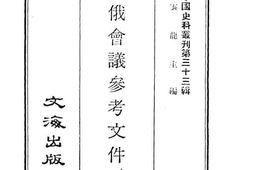 国史料叢刊第三十三輯
雲龍主編
俄會議參考文件
文海出版